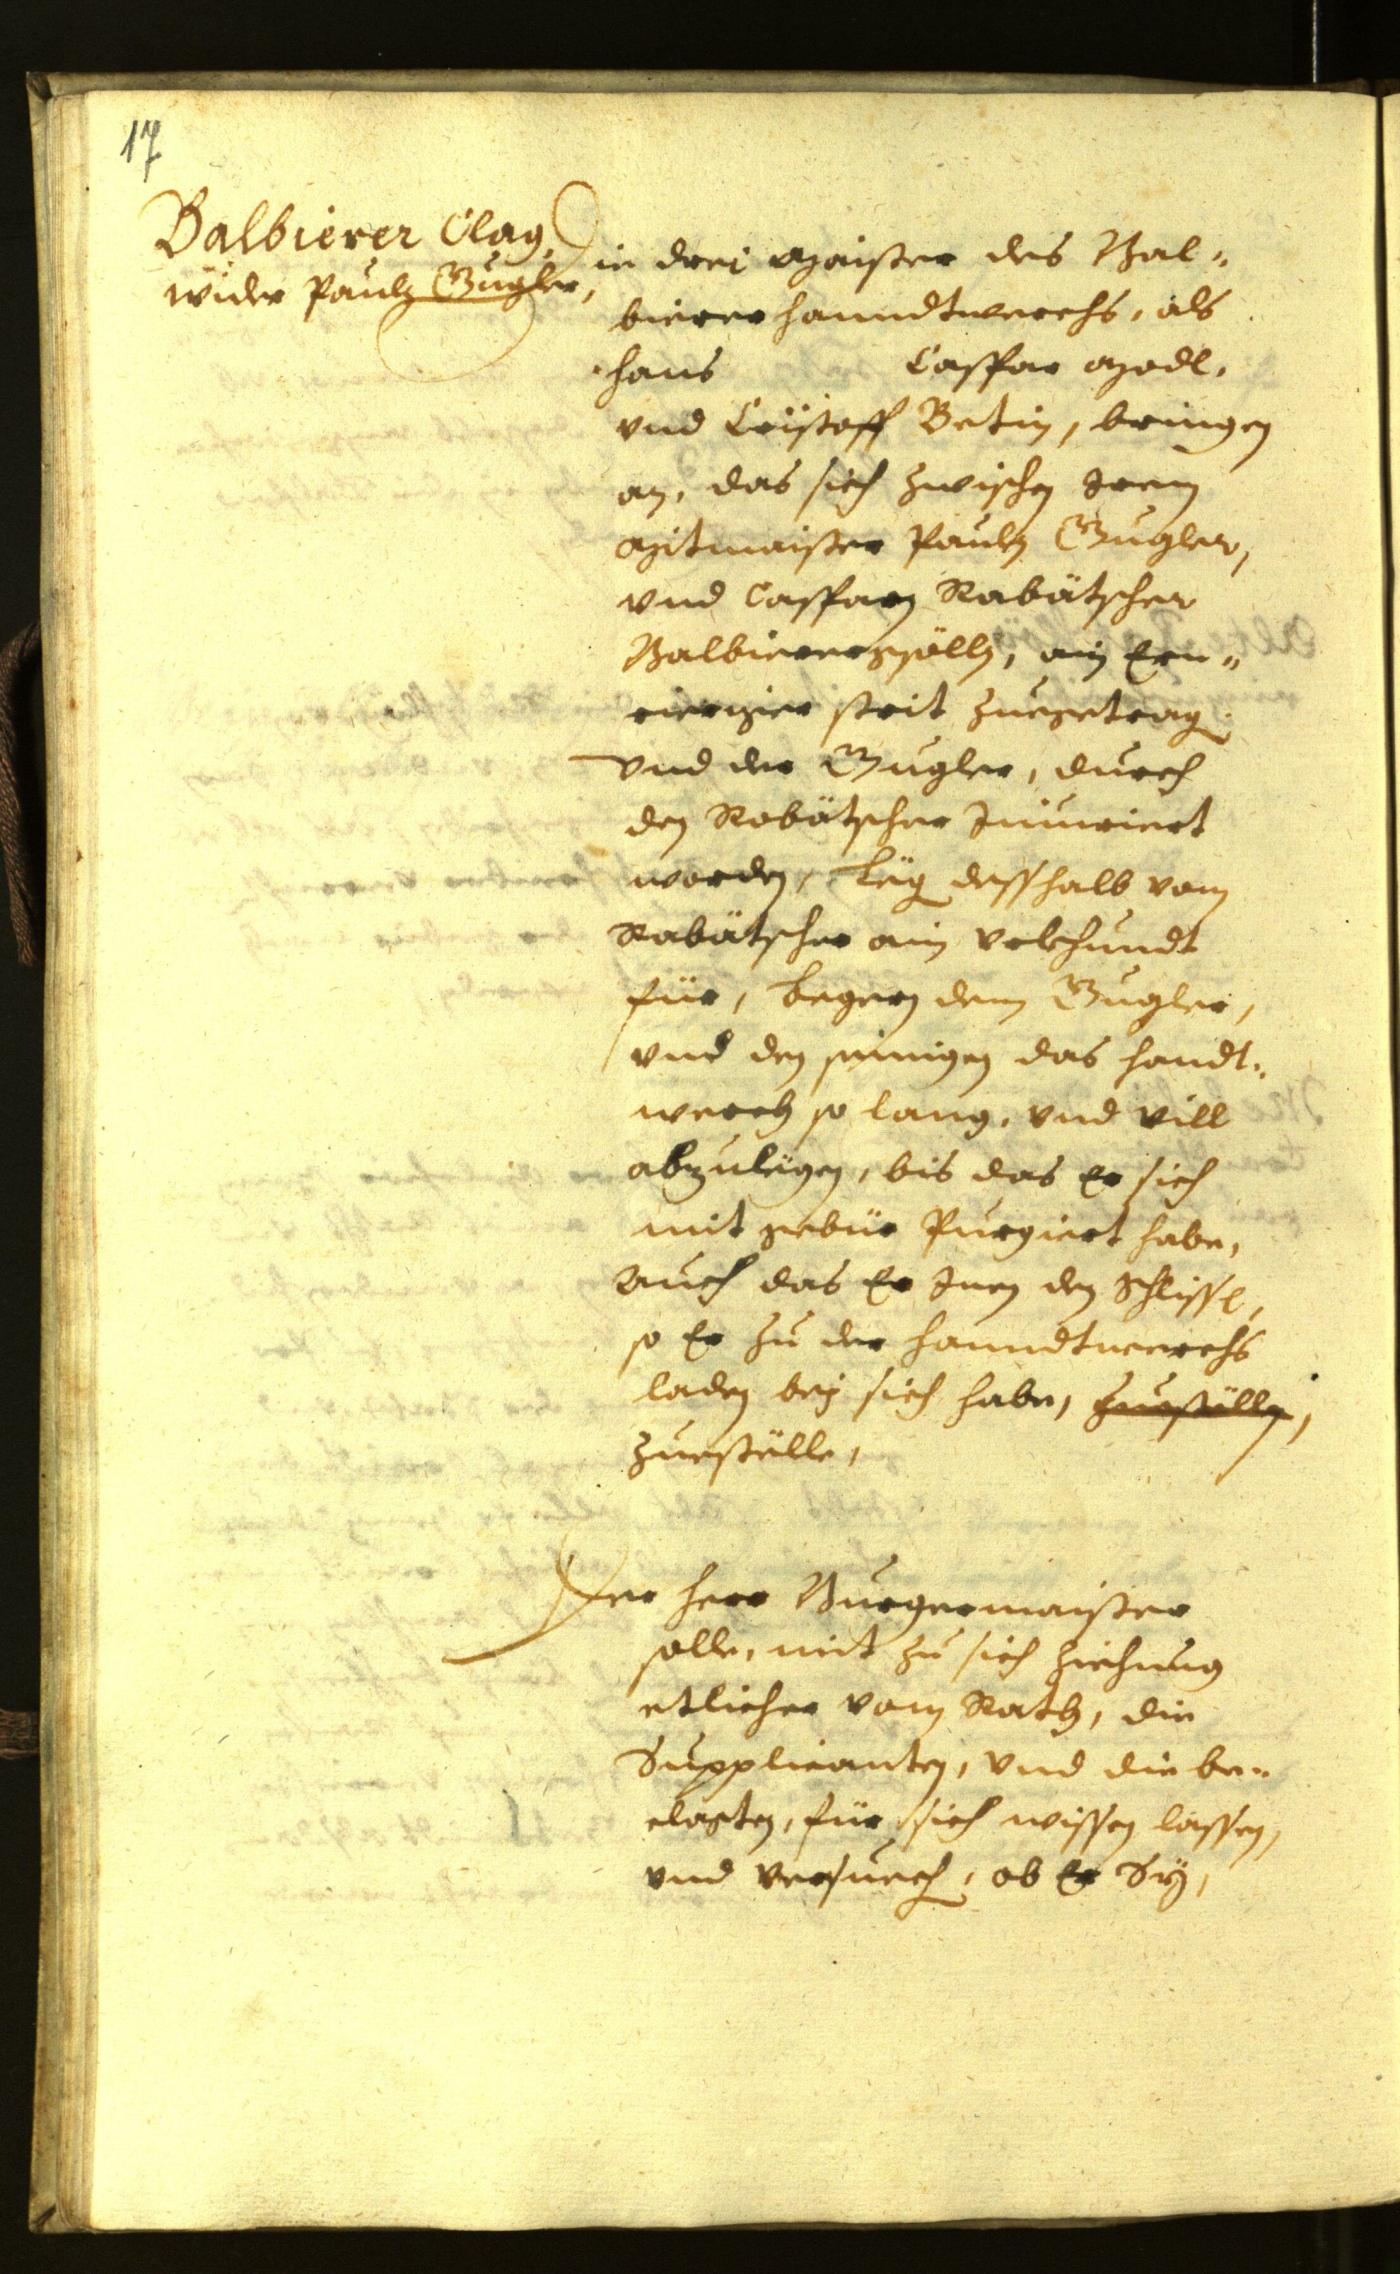 17
Balbierer Clag,
wider Paulj Gugler,
Die drei Maister des Bal-
bierer hanndtwerchs, als
Hans Caspar Modl,
vnd Cristoff Betin, bringen
an, das sich zwischen Irem
Mitmaister Paulj Gugler,
vnd Casparn Rabätscher
Balbierergsölln, ein
strit zuegetragen
vnd der Gugler, durch
den Rabätscher Iniuriert
worden, Leg desshalb vom
Rabätscher ain vrkhundt
für, begern dem Gugler,
vnd den seinigen das handt-
werch so lang, vnd vill
abzulegen, bis das Er sich
mit gebür Purgiert habe,
Auch das Er Inen den Schlissl,
so Er zu der hanndtwerchs
laden bej sich habe, zuestölle,
zuestölle,
Der herr Burgermaister
solle, mit zu sich ziehung
etlicher vom Rath, die
Supplicanten, vnd die be-
clagten, für sich wissen lassen,
vnd versuech, ob Er Sy,